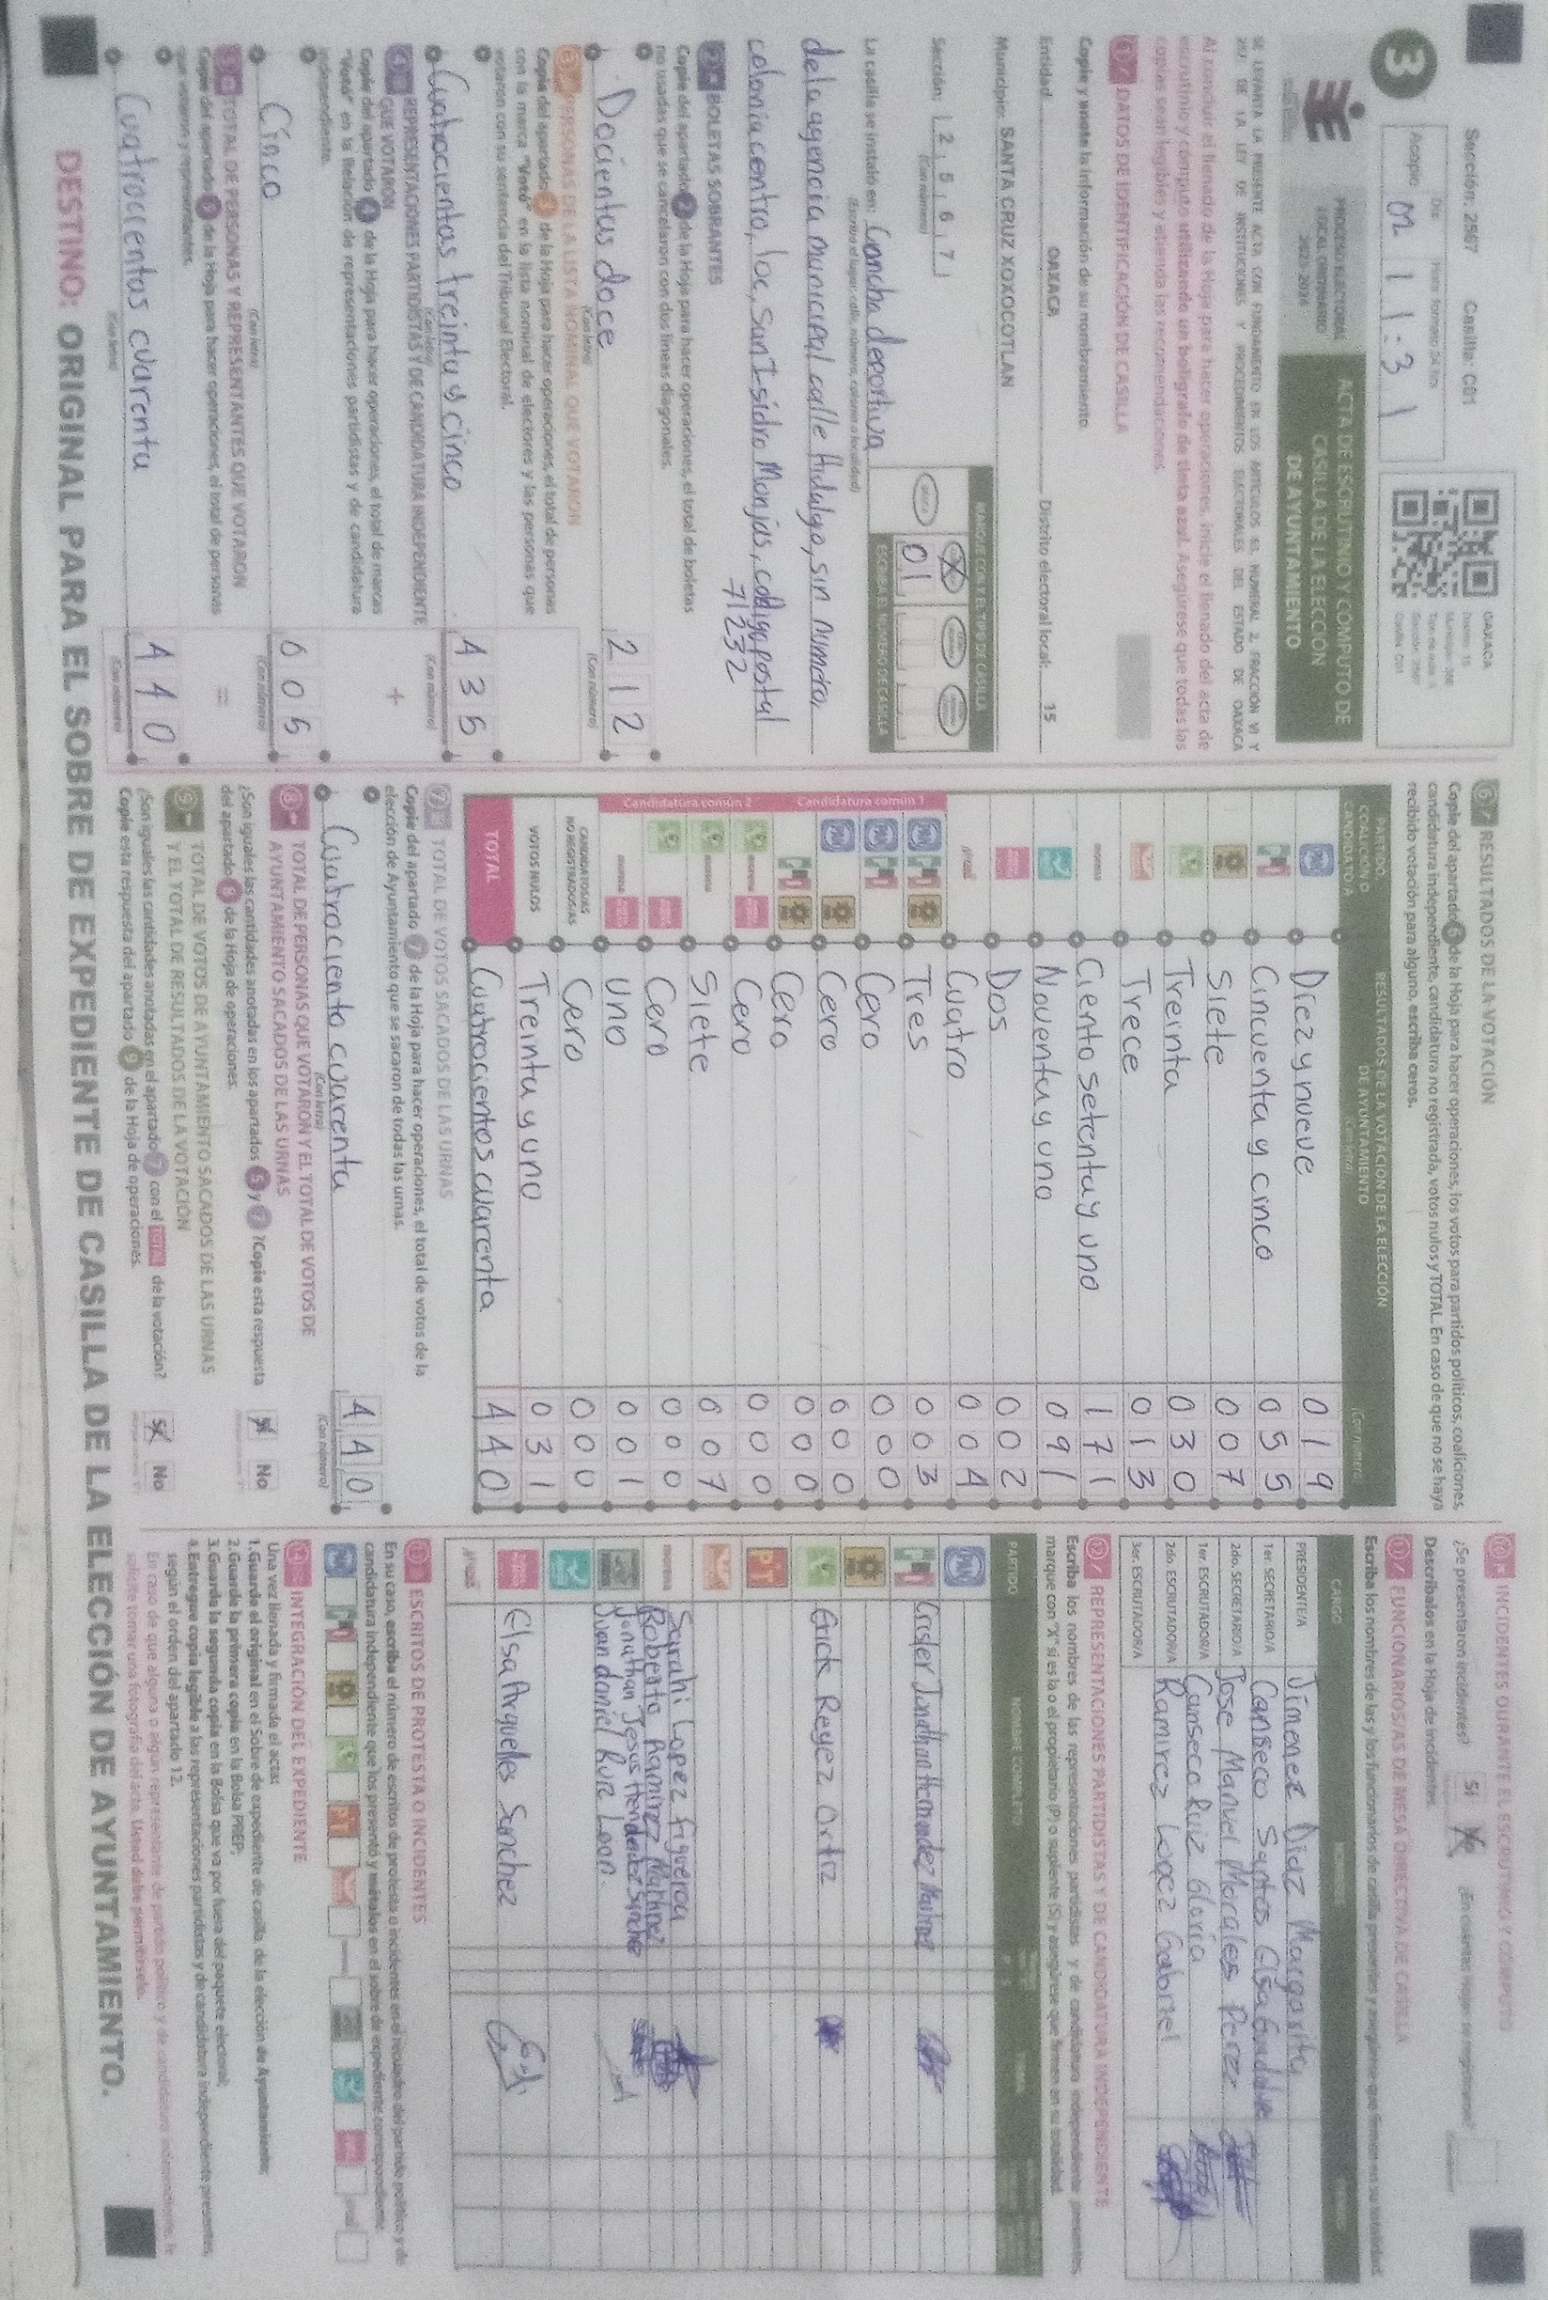 Sección: 2567 Casilla: C01
Día Hora formato 24 hrs
Acopio 02 11:31
3
PROCESO ELECTORAL
LOCAL ORDINARIO
ACTA DE ESCRUTINIO Y CÓMPUTO DE
CASILLA DE LA ELECCIÓN
DE AYUNTAMIENTO
OAXACA
SE LEVANTA LA PRESENTE ACTA CON FUNDAMENTO EN LOS ARTÍCULOS
Al concluir el llenado de la Hoja para hacer operaciones, inicie el llenado del acta de
escrutinio y cómputo utilizando un bolígrafo de tinta azul. Asegúrese que todas las
copias sean legibles y atienda las recomendaciones.
1 DATOS DE IDENTIFICACIÓN DE CASILLA
Copie y anote la información de su nombramiento.
Entidad OAXACA Distrito electoral local: 15
Municipio: SANTA CRUZ XOXOCOTLAN
Sección: 2567
(Con número)
MARQUE CON X EL TIPO DE CASILLA
ESCRIBA EL NÚMERO DE CASILLA
01
La casilla se instaló en: Cancha deportiva
(Escriba el lugar: calle, número, colonia o localidad)
de la agencia municipal calle Hidalgo, sin numero,
colonia centro, loc, San Isidro Monjas, codigo postal
71232
2 BOLETAS SOBRANTES
Copie del apartado 2 de la Hoja para hacer operaciones, el total de boletas
no usadas que se cancelaron con dos líneas diagonales.
Docientas doce 212
(Con letra) (Con número)
3 PERSONAS DE LA LISTA NOMINAL QUE VOTARON
Copie del apartado 3 de la Hoja para hacer operaciones, el total de personas
con la marca "Votó" en la lista nominal de electores y las personas que
votaron con su sentencia del Tribunal Electoral.
Cuatrocientas treinta y cinco 435
(Con letra) (Con número)
4 REPRESENTACIONES PARTIDISTAS Y DE CANDIDATURA INDEPENDIENTE
QUE VOTARON
+
Copie del apartado 4 de la Hoja para hacer operaciones, el total de marcas
"Votó" en la Relación de representaciones partidistas y de candidatura
independiente.
Cinco 005
(Con letra) (Con número)
5 TOTAL DE PERSONAS Y REPRESENTANTES QUE VOTARON
=
Copie del apartado 5 de la Hoja para hacer operaciones, el total de personas
que votaron y representantes.
Cuatrocientos cuarenta 440
(Con letra) (Con número)
6 RESULTADOS DE LA VOTACIÓN
Copie del apartado 6 de la Hoja para hacer operaciones, los votos para partidos políticos, coaliciones,
candidatura independiente, candidatura no registrada, votos nulos y TOTAL. En caso de que no se haya
recibido votación para alguno, escriba ceros.
PARTIDO,
COALICIÓN O
CANDIDATO/A
RESULTADOS DE LA VOTACIÓN DE LA ELECCIÓN
DE AYUNTAMIENTO
(Con letra) (Con número)
Diez y nueve 019
Cincuenta y cinco 055
Siete 007
Treinta 030
Trece 013
morena Ciento setenta y uno 171
Noventa y uno 091
Dos 002
Cuatro 004
Candidatura común 1
Tres 003
Cero 000
Cero 000
Cero 000
Candidatura común 2
Cero 000
Siete 007
Cero 000
Uno 001
CANDIDATOS/AS
NO REGISTRADOS/AS Cero 000
VOTOS NULOS Treinta y uno 031
TOTAL Cuatrocientos cuarenta 440
7 TOTAL DE VOTOS SACADOS DE LAS URNAS
Copie del apartado 7 de la Hoja para hacer operaciones, el total de votos de la
elección de Ayuntamiento que se sacaron de todas las urnas.
Cuatrociento cuarenta 440
(Con letra) (Con número)
8 TOTAL DE PERSONAS QUE VOTARON Y EL TOTAL DE VOTOS DE
AYUNTAMIENTO SACADOS DE LAS URNAS
¿Son iguales las cantidades anotadas en los apartados 5 y 7? Copie esta respuesta
del apartado 8 de la Hoja de operaciones.
Sí No
9 TOTAL DE VOTOS DE AYUNTAMIENTO SACADOS DE LAS URNAS
Y EL TOTAL DE RESULTADOS DE LA VOTACIÓN
¿Son iguales las cantidades anotadas en el apartado 7 con el TOTAL de la votación?
Copie esta respuesta del apartado 9 de la Hoja de operaciones.
Sí No
10 INCIDENTES DURANTE EL ESCRUTINIO Y CÓMPUTO
¿Se presentaron incidentes? Sí No
Descríbalos en la Hoja de incidentes.
11 FUNCIONARIOS/AS DE MESA DIRECTIVA DE CASILLA
Escriba los nombres de las y los funcionarios de casilla presentes y asegúrese que firmen en su totalidad.
CARGO
PRESIDENTE/A Jimenez Diaz Margarita
1er. SECRETARIO/A Canseco Santos Elsa Guadalupe
2do. SECRETARIO/A Jose Manuel Morales Perez
1er. ESCRUTADOR/A Canseco Ruiz Gloria
2do. ESCRUTADOR/A Ramirez Lopez Gabriel
3er. ESCRUTADOR/A
12 REPRESENTACIONES PARTIDISTAS Y DE CANDIDATURA INDEPENDIENTE
Escriba los nombres de las representaciones partidistas y de candidatura independiente presentes,
marque con "X" si es la o el propietario (P) o suplente (S) y asegúrese que firmen en su totalidad.
PARTIDO NOMBRE COMPLETO
Crister Jonathan Hernandez
Erick Reyez Ortiz
PT
morena Sarahi Lopez Figueroa
Roberto Ramirez
Jonathan Jesus Sanchez
Dan daniel Ruiz Leon.
Elsa Arguelles Sanchez
13 ESCRITOS DE PROTESTA O INCIDENTES
En su caso, escriba el número de escritos de protesta o incidentes en el recuadro del partido político y de
candidatura independiente que los presentó y métalos en el sobre de expediente correspondiente.
14 INTEGRACIÓN DEL EXPEDIENTE
Una vez llenada y firmada el acta:
1.Guarde el original en el Sobre de expediente de casilla de la elección de Ayuntamiento;
2.Guarde la primera copia en la Bolsa PREP;
3.Guarde la segunda copia en la Bolsa que va por fuera del paquete electoral;
4.Entregue copia legible a las representaciones partidistas y de candidatura independiente presentes,
según el orden del apartado 12.
En caso de que alguna o algún representante de partido político y de candidatura independiente, le
solicite tomar una fotografía del acta, Usted debe permitírselo.
DESTINO: ORIGINAL PARA EL SOBRE DE EXPEDIENTE DE CASILLA DE LA ELECCIÓN DE AYUNTAMIENTO.